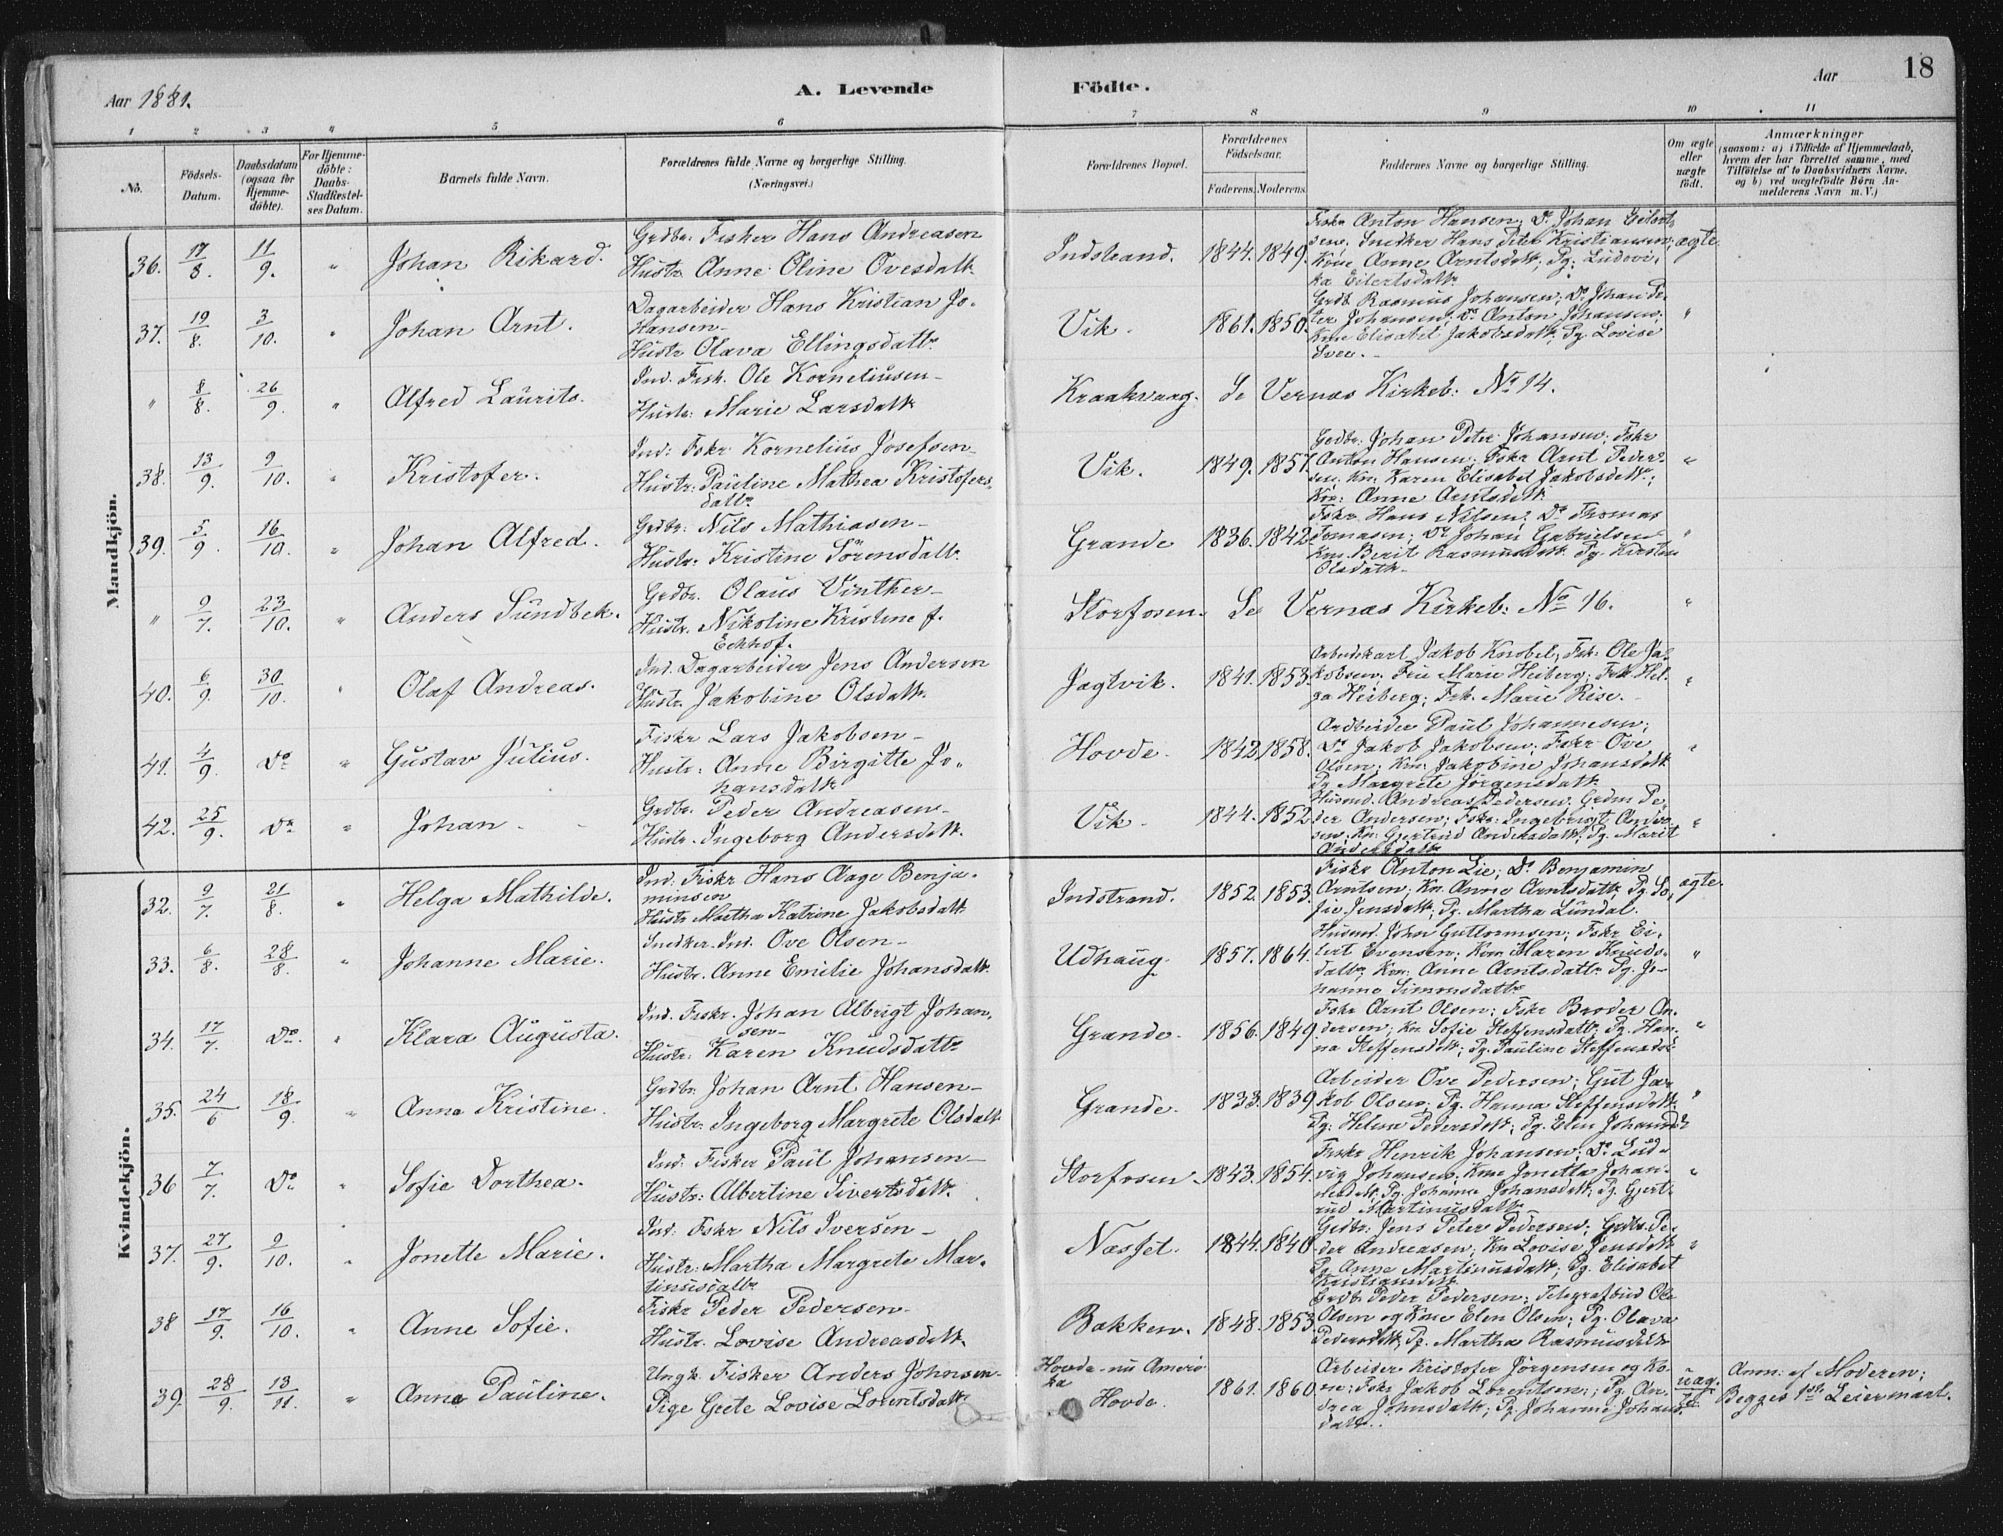 Aar 1881.
A. Levende
Födte.
Aar
18
1 2 3 4 5 6 7 8 9 10 11
No.
Födsels-
Datum.
Daabsdatum
(ogsaa for
Hjemme-
döbte).
For Hjemme-
döbte:
Daabs-
Stadfæstel-
ses Datum.
Barnets fulde Navn.
Forældrenes fulde Navne og borgerlige Stilling.
(Næringsvei.)
Forældrenes Bopæl.
Forældrenes
Födselsaar.
Faderens. Moderens.
Faddernes Navne og borgerlige Stilling.
Om ægte
eller
uægte
födt.
Anmærkninger
(saasom: a) i Tilfælde af Hjemmedaab,
hvem der har forrettet samme, med
Tilföielse af to Daabsvidners Navne,
og b) ved uægtefödte Börn An-
melderens Navn m. V.)
Mandkjön.
36. 17/8 11/9. " Johan Rikard.
Grdbr. Fisker Hans Andreasen
Hustr. Anne Oline Ovesdatt.
Indstrand. 1844. 1849.
Fiskr Anton Hansen; Do Johan Eilert-
sen; Snedker Hans Peter Kristiansen;
Kone Anne Arntsdatt; Pg. Ludovi-
ka Eilertsdatt.
ægte.
37. 19/8. 3/10. " Johan Arnt.
Dagarbeider Hans Kristian Jo-
hansen
Hustr Olava Ellingsdatt.
Vik. 1861. 1850.
Grdb. Rasmus Johansen; Do Johan Pe-
ter Johansen; Do Anton Johansen;
Kone Elisabet Jakobsdatt; Pg. Lovise
"
" 8/8. 26/9. " Alfred Laurits.
Ind. Fisk. Ole Korneliusen
Hustr: Marie Larsdatt
Kraakvaag. Se Vernæs Kirkeb: No 14.
38. 13/9. 9/10. " Kristofer.
Ind: Fskr Kornelius Josefsen
Hustr: Pauline Mathea Kristofers-
datt.
Vik. 1849. 1857.
Grdbr: Johan Peter Johansen; Fskr
Anton Hansen; Fskr Arnt Peder-
sen; Kn: Karen Elisabet Jakobsdatt;
Kn: Anne Arntsdatt
"
39. 5/9. 16/10. " Johan Alfred.
Grdbr: Nils Mathiasen
Hustr: Kristine Sörensdatt.
Grande 1836. 1842.
Fskr Hans Nilsen; Do Thomas
Tomasen; Do Johan Gabrielsen
Kn. Berit Rasmusdatt. Pg. Kirsten
Olsdatt.
"
" 9/7. 23/10. " Anders Sundbek.
Grdbr. Olaus Vinther
Hustr. Nikoline Kristine f.
Eckhof.
Storfosen. Se Vernæs Kirkeb: No 16.
"
40. 6/9. 30/10. " Olaf Andreas.
Ind. Dagarbeider Jens Andersen
Hustr. Jakobine Olsdatt.
Jagtvik. 1841. 1853.
Arbeidskarl Jakob Knobel; Fsk: Ole Ja-
kobsen; Fru Marie Heiberg; Frk Hel-
ga Heiberg; Frk. Marie Rise.
"
41. 4/9. Do " Gustav Julius.
Fiskr Lars Jakobsen
Hustr: Anne Birgitte Jo-
hansdatt.
Hovde. 1842 1858.
Ardbeider Paul Johannesen;
Do Jakob Jakobsen; Fskr Ove
Olsen; Kn: Jakobine Johansdatt
Pg Margrete Jørgensdatt
"
42. 25/9. Do " Johan
Grdbr. Peder Andreasen
Hustr. Ingeborg Andersdatt.
Vik. 1844. 1852.
Husmd. Andreas Pedersen. Grdm Pe-
der Andersen; Fskr. Ingebrigt Ander-
sen; Kn: Gjertrud Andersdatt; Pg. Marit
Andersdatt.
"
Kvindekjön.
32. 9/7. 21/8. " Helga Mathilde.
Ind: Fiskr Hans Aage Benja-
minsen
Hustr Martha Katrine Jakobsdatt
Indstrand. 1852. 1853.
Fiskr Anton Lie; Do Benjamin
Arntsen; Kn. Anne Arntsdatt; Pg. So-
fie Jensdatt; Pg. Martha Lundal.
ægte.
33. 6/8. 28/8. " Johanne Marie.
Snedker. Ind. Ove Olsen
Hustr. Anne Emilie Johansdatt.
Udhaug. 1857. 1864.
Husmd. John Guttormsen; Fskr Ei-
lert Evensen; Kone Maren Knuds-
datt; Kn: Anne Arntsdatt. Pg. Jo-
hanne Simonsdatt
"
34. 17/7. Do. " Klara Augusta.
Ind. Fiskr. Johan Albrigt Johan-
sen
Hustr: Karen Knudsdatt
Grande. 1856. 1849.
Fskr Arnt Olsen; Fskr Broder An-
dersen; Kn. Sofie Steffensdatt; Pg. Han-
na Steffensdatt; Pg. Pauline Steffensdat
"
35. 24/6 18/9. " Anna Kristine.
Grdbr. Johan Arnt Hansen
Hustr: Ingeborg Margrete Olsdatt
Grande. 1833. 1839
Arbeider Ove Pedersen; Gut Ja-
kob Olsen; Pg. Hanna Steffensdatt.
Pg: Helene Pedersdatt; Pg. Elen Johansd
"
36 7/7. Do " Sofie Dorthea.
Ind. Fisker Paul Johansen
Hustr: Albertine Sivertsdatt.
Storfosen. 1843. 1854.
Fiskr Henrik Johansen; Do Lud-
vig Johansen; Kone Jonetta Johan-
nesdatt, Pg. Johanna Johansdatt; Pg. Gjert-
rud Martinusdatt
"
37. 27/9. 9/10. " Jonette Marie.
Ind: Fskr Nils Iversen
Hustr: Martha Margrete Mar-
tinusdatt
Næsset. 1844. 1840
Grdbr: Jens Peter Pedersen; Grdbr. Pe-
der Andreasen; Kn Lovise Jensdatt
Pg. Anne Martinusdatt; Pg. Elisabet
Kristiansdatt
"
38 17/9. 16/10. " Anne Sofie.
Fiskr Peder Pedersen
Hustr. Lovise Andreasdatt.
Bakken. 1848. 1853.
Grdb. Peder Pedersen; Telegrafbud Ole
Olsen og Kone Elen Olsen; Pg. Olava
Pedersdatt; Pg. Martha Rasmusdatt
39. 28/9. 13/11. " Anna Pauline.
Ungk. Fisker Anders Johnsen
Pige Grete Lovise Lorentsdatt
Hovde - nu Ameri-
ka
Hovde. 1861. 1860.
Arbeider Kristofer Jørgensen og Ko-
ne; Fskr Jakob Lorentsen; Pg. An-
drea Johnsdatt; Pg. Johanne Johans-
datt.
uæg-
te
Anm. af Moderen;
Begges 1ste Leiermaal.